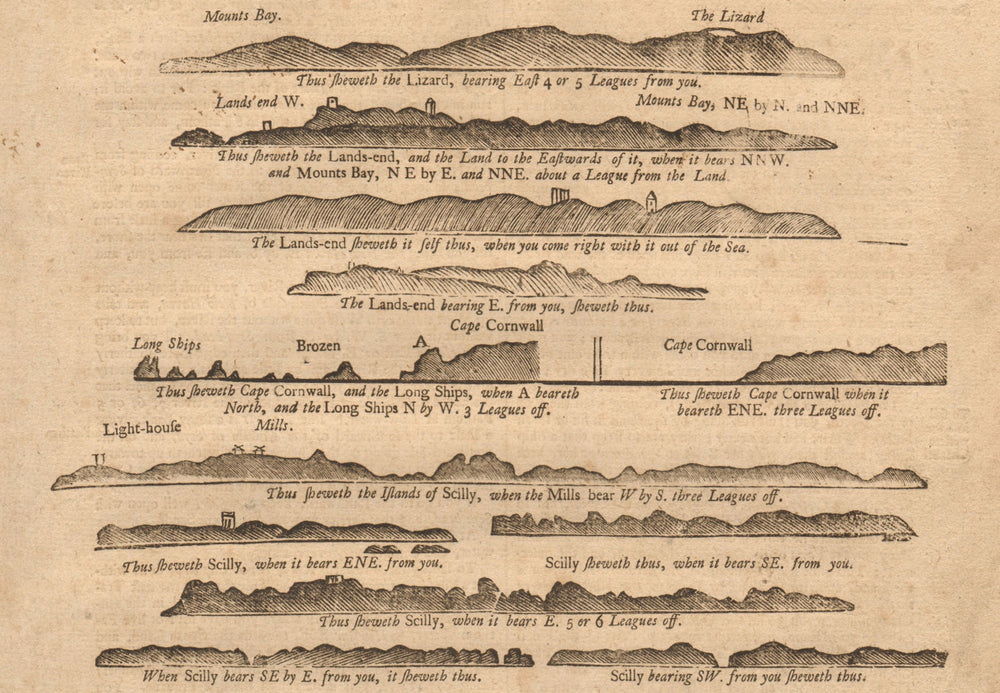 Mounts Bay. The Lizard
Thus ſheweth the Lizard, bearing Eaſt 4 or 5 Leagues from you.
Lands'end W. Mounts Bay, NE by N. and NNE.
Thus ſheweth the Lands-end, and the Land to the Eaſtwards of it, when it bears NNW.
and Mounts Bay, NE by E. and NNE. about a League from the Land.
The Lands-end ſheweth it ſelf thus, when you come right with it out of the Sea.
The Lands-end bearing E. from you, ſheweth thus.
Cape Cornwall
Long Ships Brozen A Cape Cornwall
Thus ſheweth Cape Cornwall, and the Long Ships, when A beareth
North, and the Long Ships N by W. 3 Leagues off.
Thus ſheweth Cape Cornwall when it
beareth ENE. three Leagues off.
Light-houſe Mills.
Thus ſheweth the Iſlands of Scilly, when the Mills bear W by S. three Leagues off.
Thus ſheweth Scilly, when it bears ENE. from you.
Scilly ſheweth thus, when it bears SE. from you.
Thus ſheweth Scilly, when it bears E. 5 or 6 Leagues off.
When Scilly bears SE by E. from you, it ſheweth thus.
Scilly bearing SW. from you ſheweth thus.